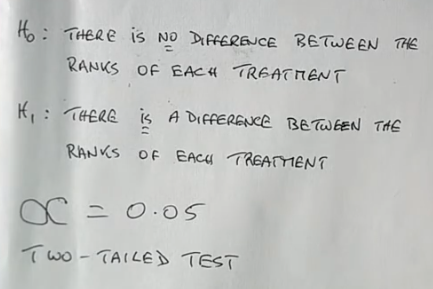 H₀: THERE IS NO DIFFERENCE BETWEEN THE
RANKS OF EACH TREATMENT
H₁: THERE IS A DIFFERENCE BETWEEN THE
RANKS OF EACH TREATMENT
α = 0.05
TWO-TAILED TEST